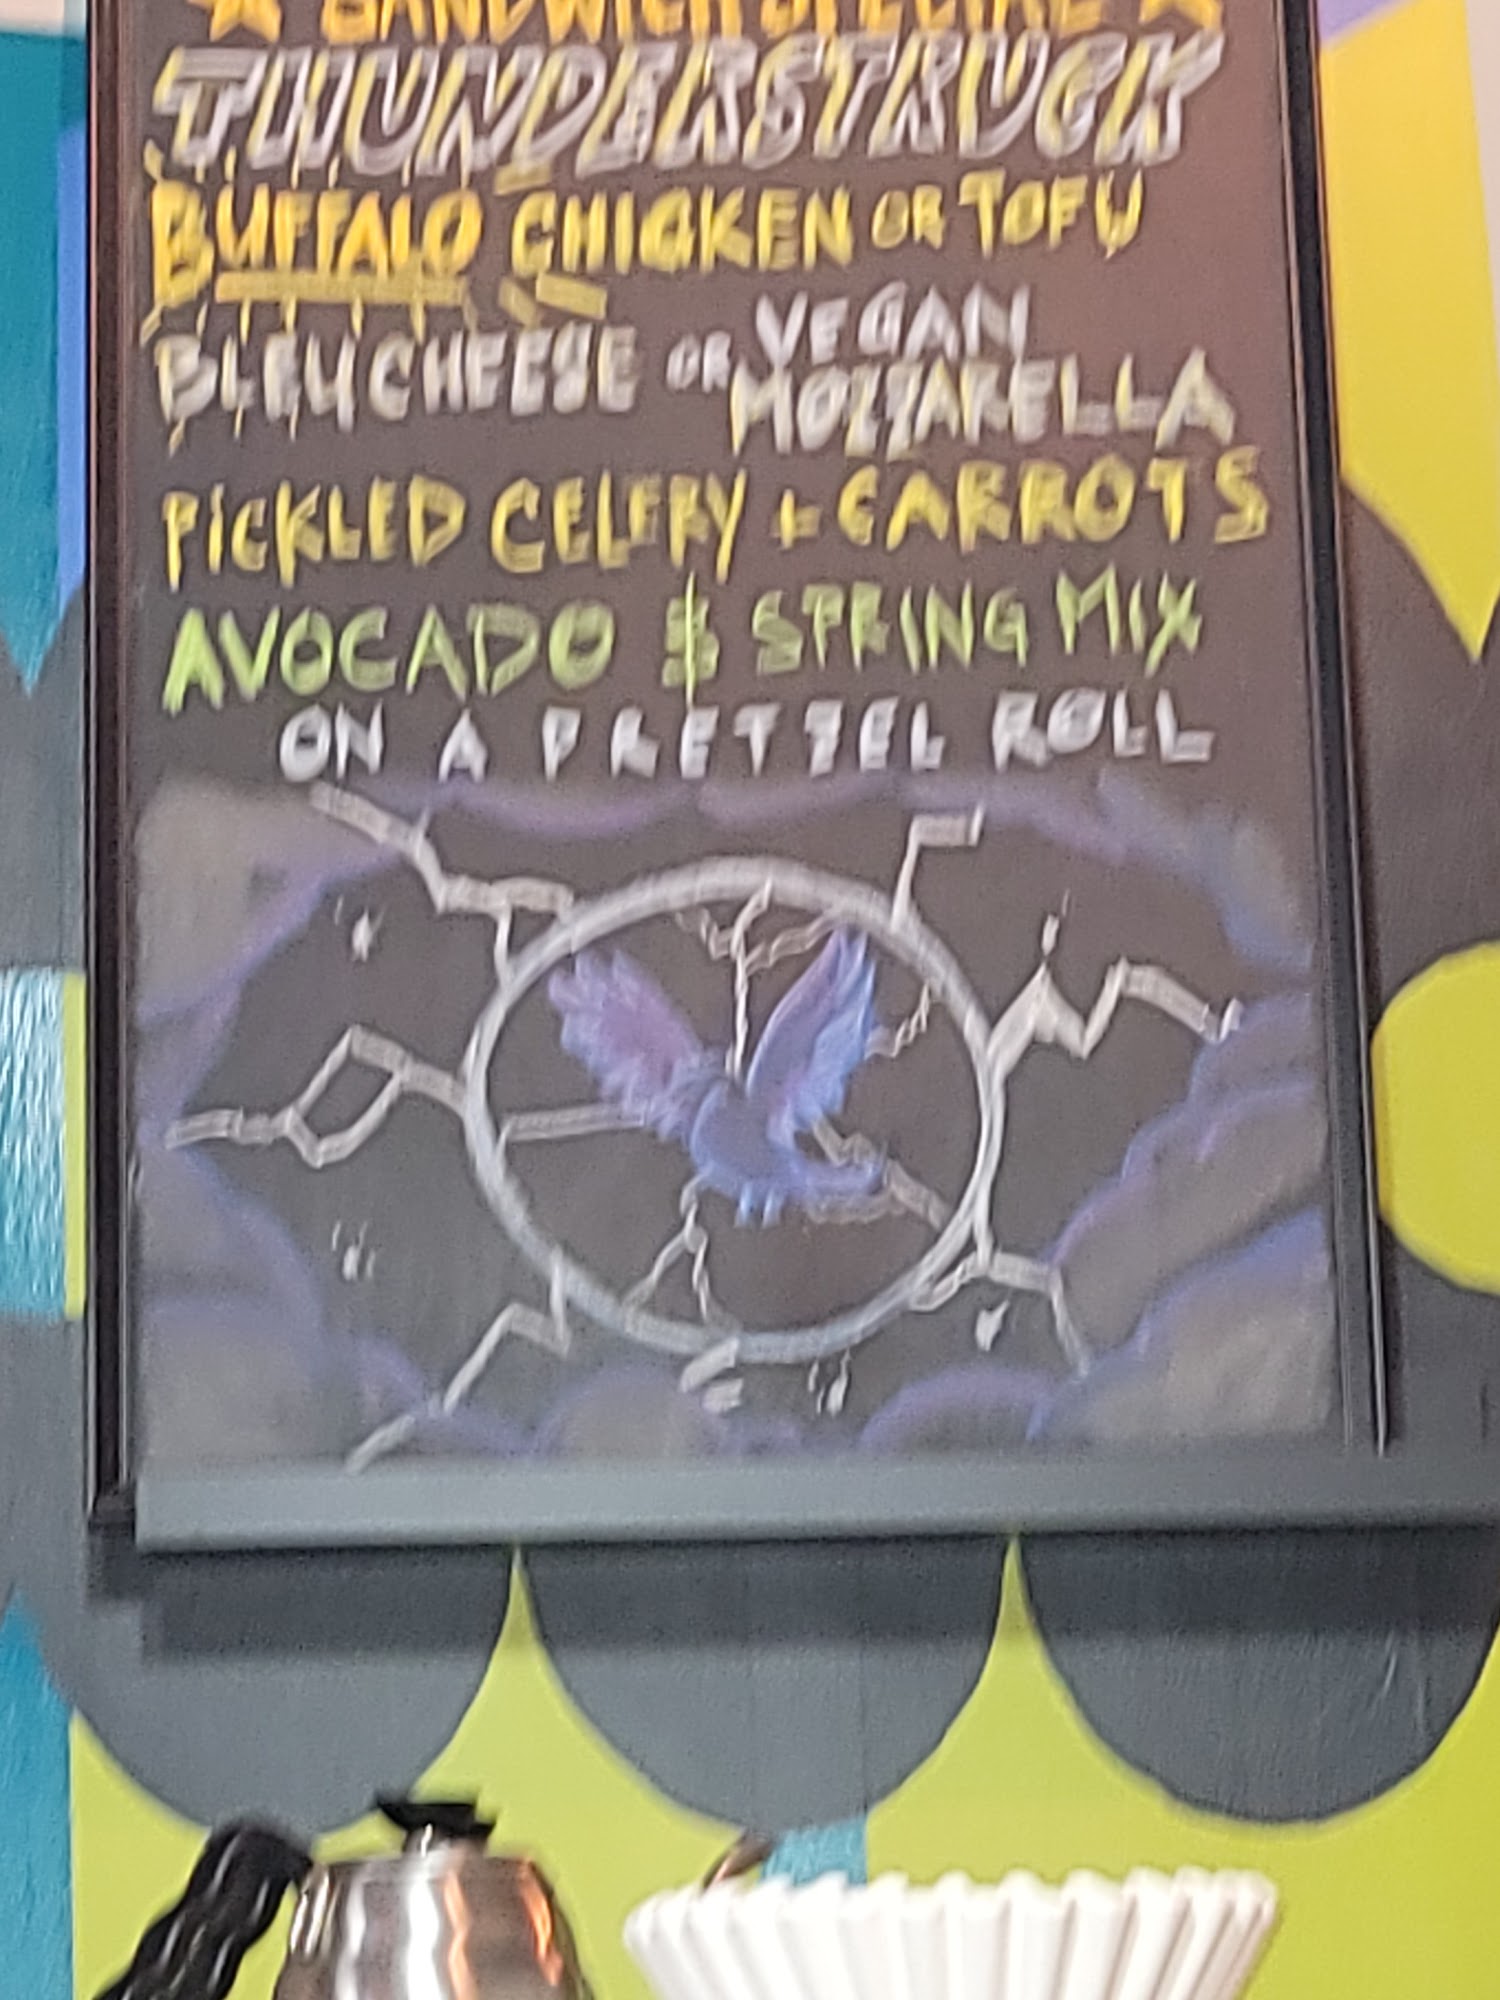 SANDWICH SPECIAL
THUNDERSTRUCK
BUFFALO CHICKEN OR TOFU
BLEU CHEESE OR VEGAN MOZZARELLA
PICKLED CELERY + CARROTS
AVOCADO $ SPRING MIX
ON A PRETZEL ROLL